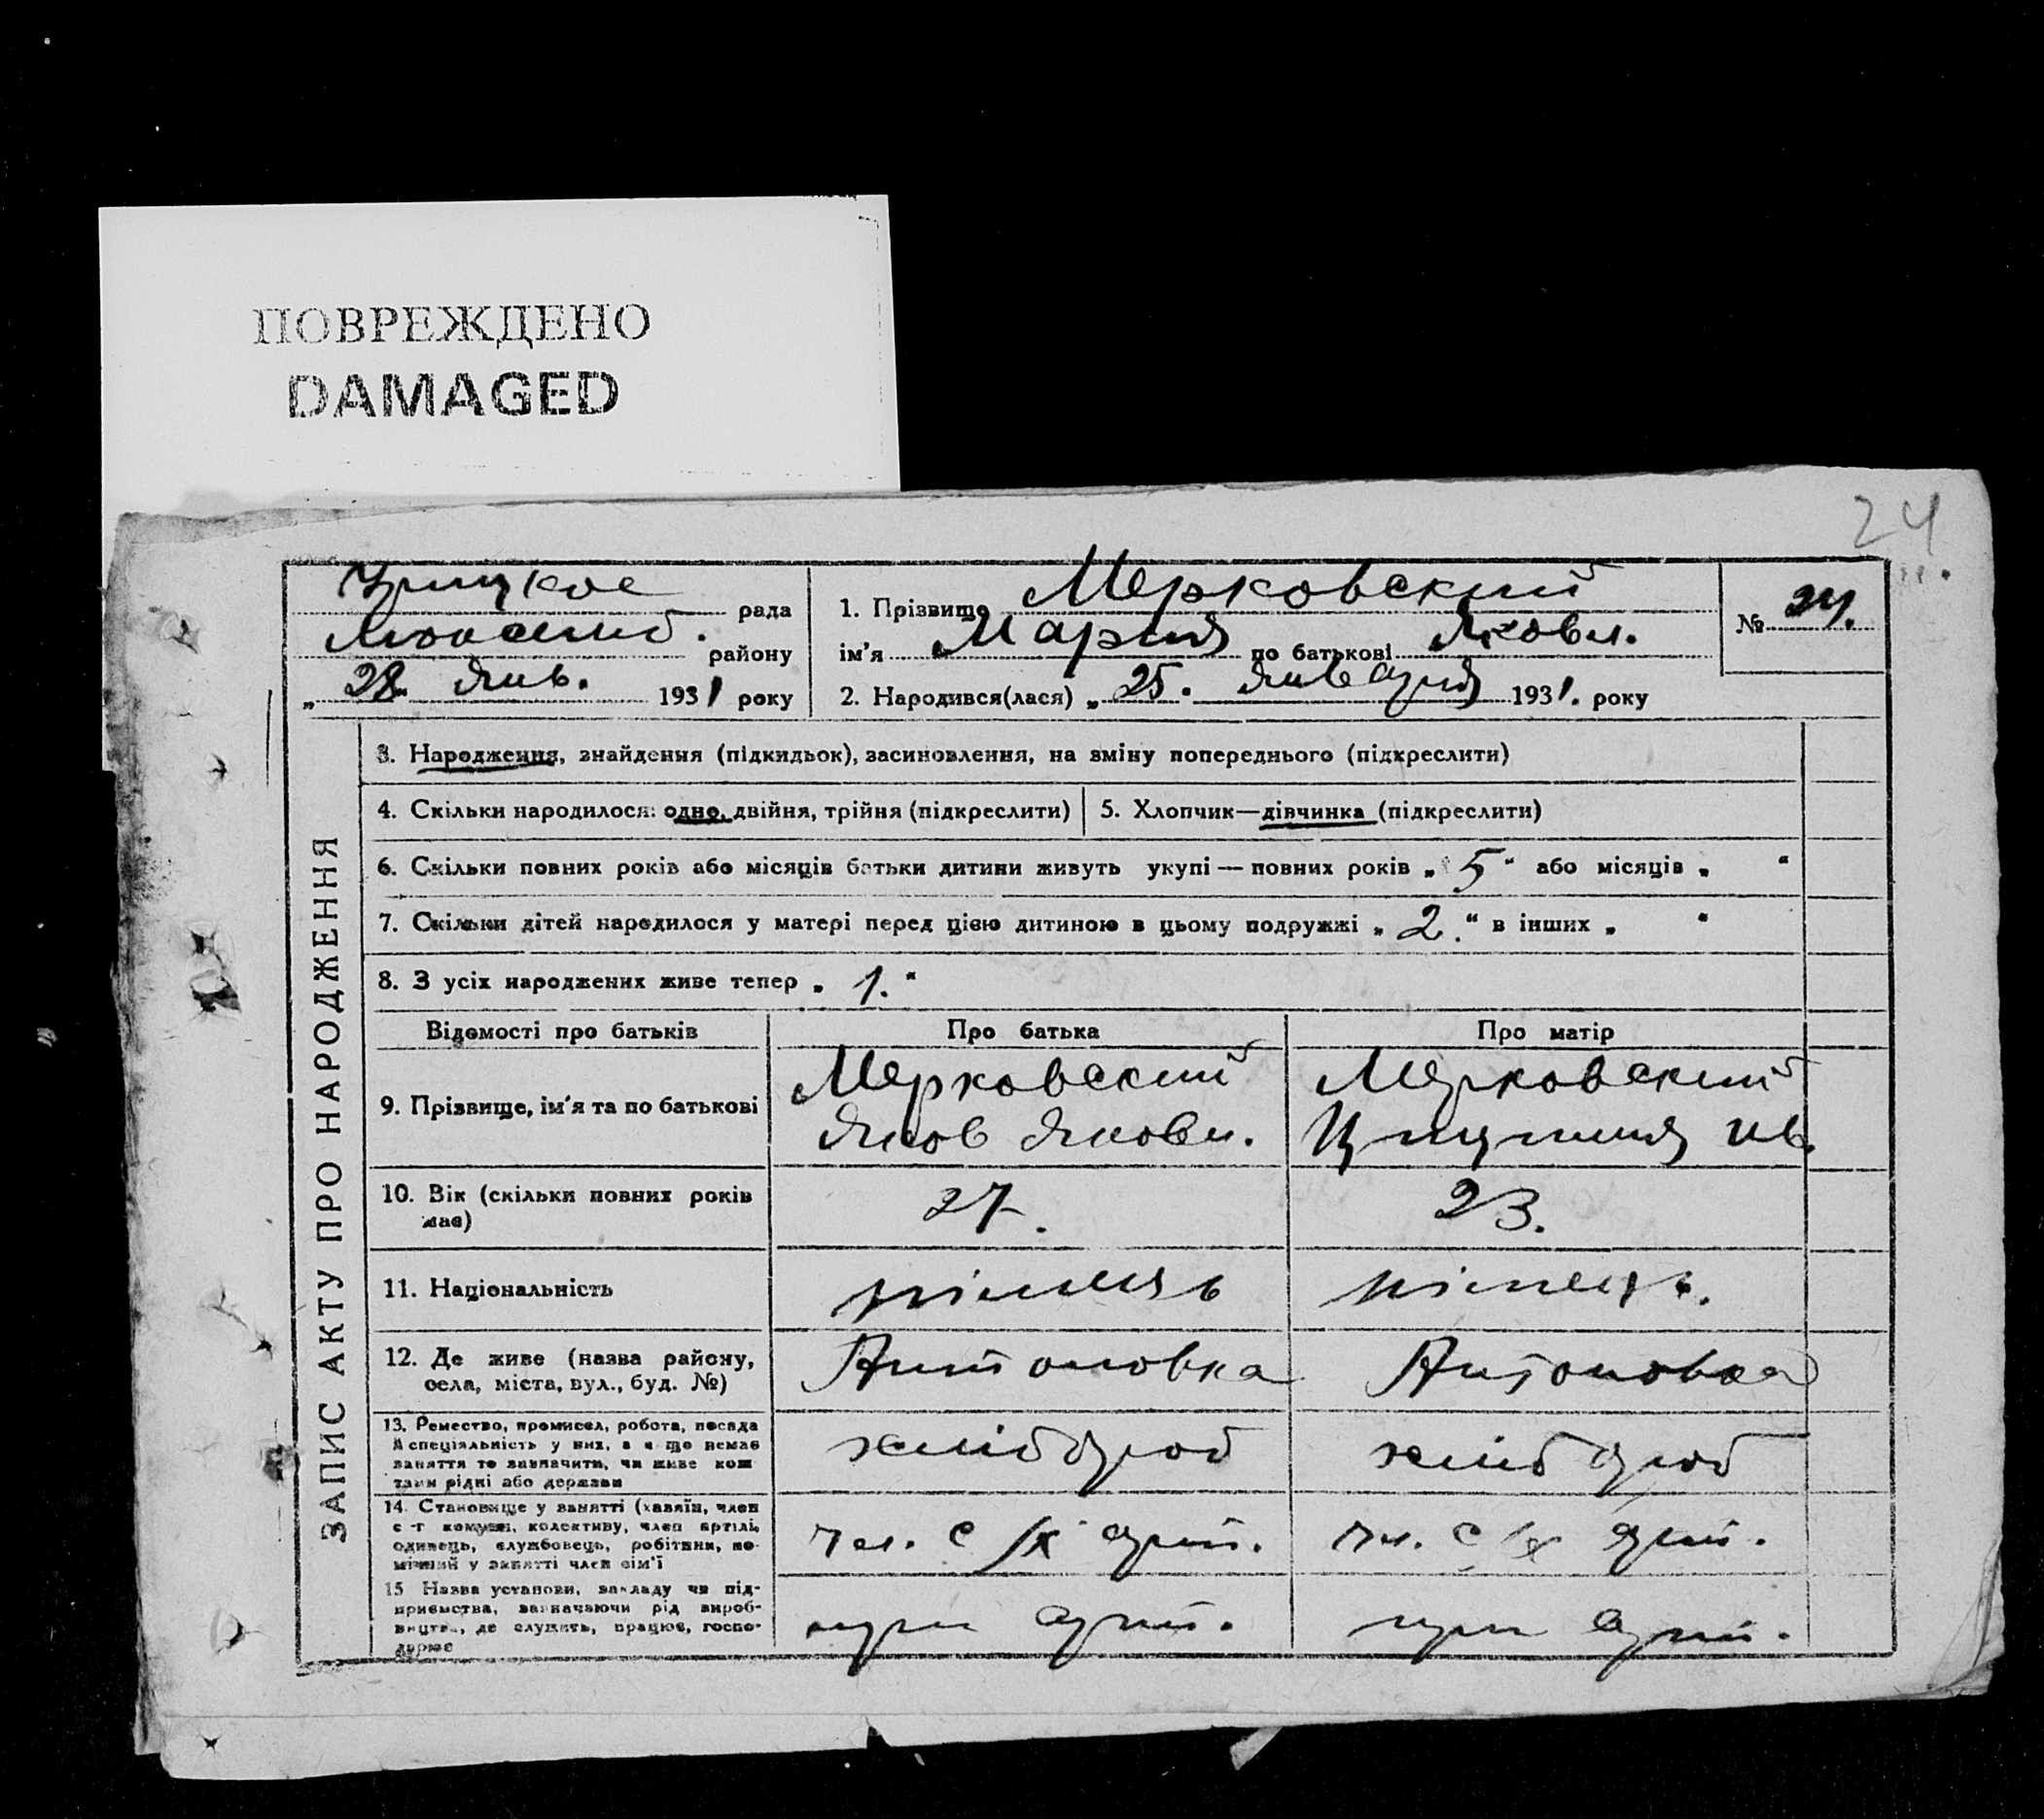 ПОВРЕЖДЕНО
DAMAGED
24
Урицкое рада
района
„28. Янв. 1931 року
1. Прізвище Мерковский
ім'я Мария по батькові Яковл.
2. Народився(лася) „25. января 1931. року
№ 24.
ЗАПИС АКТУ ПРО НАРОДЖЕННЯ
3. Народження, знайдення (підкидьок), засиновлення, на зміну попереднього (підкреслити)
4. Скільки народилося: одно, двійня, трійня (підкреслити)
5. Хлопчик—дівчинка (підкреслити)
6. Скільки повних років або місяців батьки дитини живуть укупі — повних років „5“ або місяців „ “
7. Скільки дітей народилося у матері перед цією дитиною в цьому подружжі „2.“ в інших „ “
8. З усіх народжених живе тепер „ 1. “
Відомості про батьків
Про батька
Про матір
9. Прізвище, ім'я та по батькові
Мерковский
Яков Яковл.
Мерковский
Ив.
10. Вік (скільки повних років
має)
27.
23.
11. Національність
німець
німець.
12. Де живе (назва району,
села, міста, вул., буд. №)
Антоновка
Антоновка
13. Ремество, промисел, робота, посада
й спеціяльність у них, а як що немає
заняття то зазначити, чи живе кош
тами рідні або держави
хлібороб
хлібороб
14. Становище у занятті (хазяїн, член
с-г комуни, колективу, член артілі,
одинець, службовець, робітник, по-
мічний у занятті член сім'ї
чл. с/х арт.
чл. с/х арт.
15 Назва установи, закладу чи під-
приємства, зазначаючи рід вироб-
ництва, де служить, працює, госпо-
дарює
при арт.
при арт.